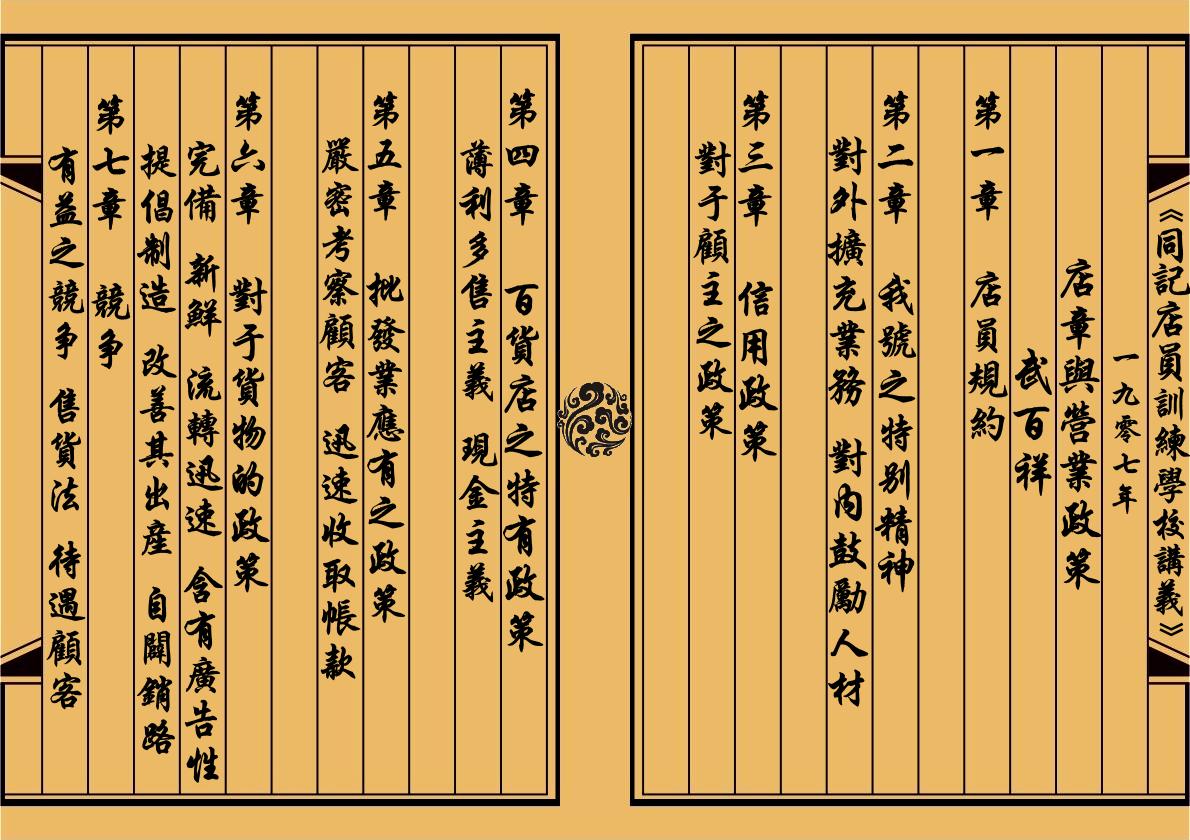 《同記店員訓練學校講義》
一九零七年
店章與營業政策
武百祥
第一章 店員規約
第二章 我號之特别精神
對外擴充業務 對内鼓勵人材
第三章 信用政策
對于顧主之政策
第四章 百貨店之特有政策
薄利多售主義 現金主義
第五章 批發業應有之政策
嚴密考察顧客 迅速收取帳款
第六章 對于貨物的政策
完備 新鮮 流轉迅速 含有廣告性
提倡制造 改善其出産 自闢銷路
第七章 競争
有益之競争 售貨法 待遇顧客